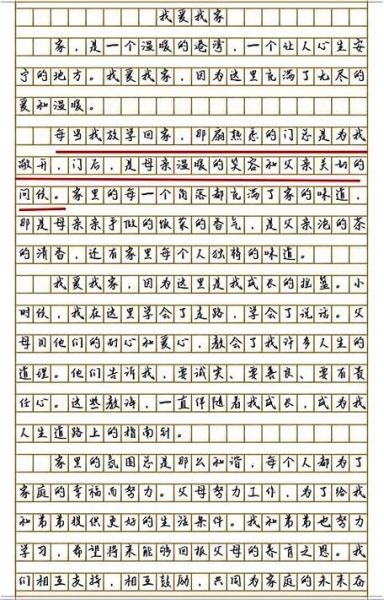 我爱我家
家，是一个温暖的港湾，一个让人心生安
宁的地方。我爱我家，因为这里充满了无尽的
爱和温暖。
每当我放学回家，那扇熟悉的门总是为我
敞开，门后，是母亲温暖的笑容和父亲关切的
问候。家里的每一个角落都充满了家的味道，
那是母亲亲手做的饭菜的香气，是父亲泡的茶
的清香，还有家里每个人独特的味道。
我爱我家，因为这里是我成长的摇篮。小
时候，我在这里学会了走路，学会了说话。父
母用他们的耐心和爱心，教会了我许多人生的
道理。他们告诉我，要诚实、要善良、要有责
任心。这些教诲，一直伴随着我成长，成为我
人生道路上的指南针。
家里的氛围总是那么和谐，每个人都为了
家庭的幸福而努力。父母努力工作，为了给我
和弟弟提供更好的生活条件。我和弟弟也努力
学习，希望将来能够回报父母的养育之恩。我
们相互支持，相互鼓励，共同为家庭的未来奋